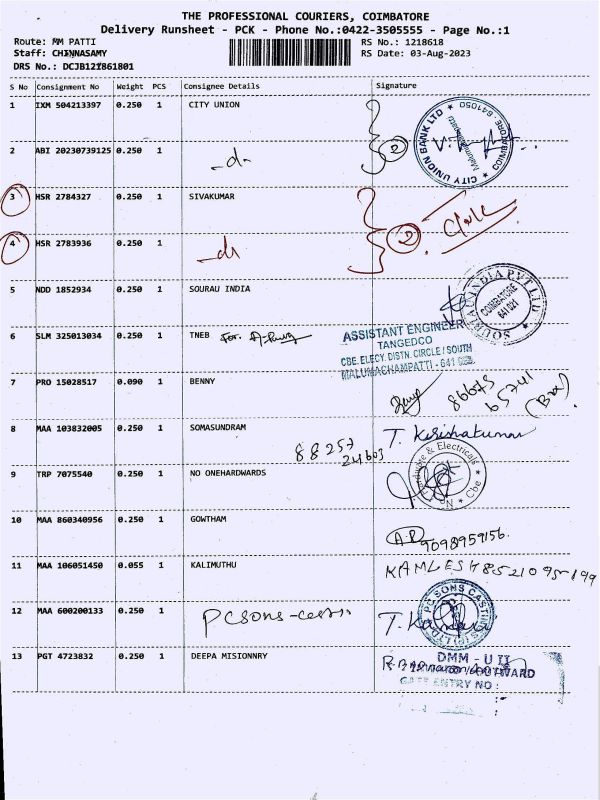 THE PROFESSIONAL COURIERS, COIMBATORE
Delivery Runsheet - PCK - Phone No.:0422-3505555 - Page No.:1
Route: MM PATTI RS No.: 1218618
Staff: CHINNASAMY RS Date: 03-Aug-2023
DRS No.: DCJB121861801
S No Consignment No Weight PCS Consignee Details Signature
1 IXM 504213397 0.250 1 CITY UNION
CITY UNION BANK LTD COIMBATORE - 641050
2 ABI 20230739125 0.250 1 -do- 2
3 HSR 2784327 0.250 1 SIVAKUMAR
4 HSR 2783936 0.250 1 2
5 NDD 1852934 0.250 1 SOURAU INDIA
COIMBATORE
641 021
6 SLM 325013034 0.250 1 TNEB For.
ASSISTANT ENGINEER
TANGEDCO
CBE. ELECY. DISTN. CIRCLE / SOUTH
MALUMACHAMPATTI - 641
7 PRO 15028517 0.090 1 BENNY
86675
65741
8 MAA 103832005 0.250 1 SOMASUNDRAM
88257
24603
9 TRP 7075540 0.250 1 NO ONEHARDWARDS
& Electricals
Cbe
10 MAA 860340956 0.250 1 GOWTHAM
9098959156.
11 MAA 106051450 0.055 1 KALIMUTHU KAMLESH 8521095199
12 MAA 600200133 0.250 1 PCSONS-
PC SONS CASTING
13 PGT 4723832 0.250 1 DEEPA MISIONNRY
DMM - U II
OUTWARD
GATE ENTRY NO :